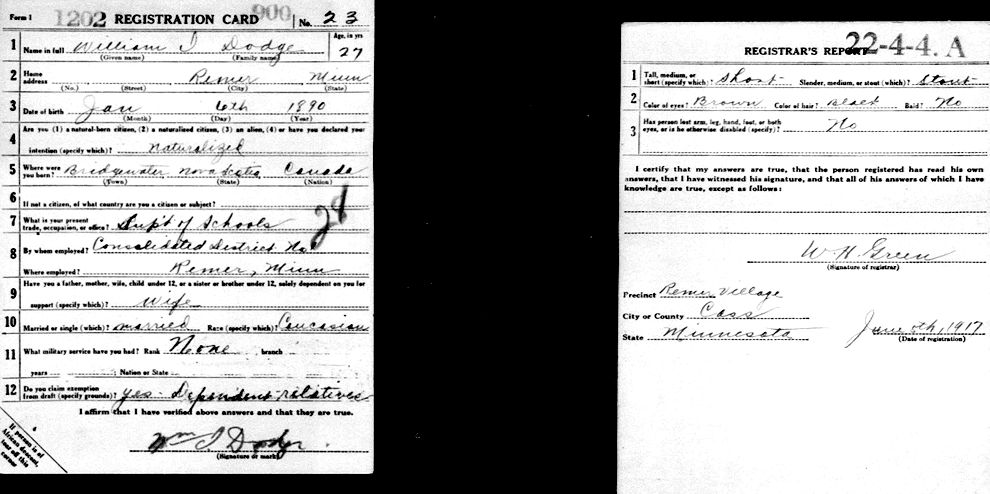 Form 1 1202 REGISTRATION CARD 900 No. 23
1 Name in full William I Dodge Age, in yrs 27
(Given name) (Family name)
2 Home address Remer Minn
(No.) (Street) (City) (State)
3 Date of birth Jan 6th 1890
(Month) (Day) (Year)
4 Are you (1) a natural-born citizen, (2) a naturalized citizen, (3) an alien, (4) or have you declared your
intention (specify which)? Naturalized
5 Where were you born? Bridgewater Nova Scotia Canada
(Town) (State) (Nation)
6 If not a citizen, of what country are you a citizen or subject?
7 What is your present trade, occupation, or office? Supt of Schools 28
8 By whom employed? Consolidated District No 1
Where employed? Remer, Minn
9 Have you a father, mother, wife, child under 12, or a sister or brother under 12, solely dependent on you for
support (specify which)? Wife
10 Married or single (which)? married Race (specify which)? Caucasian
11 What military service have you had? Rank None branch
years ; Nation or State
12 Do you claim exemption from draft (specify grounds)? Yes - Dependent relatives
I affirm that I have verified above answers and that they are true.
Wm I Dodge
(Signature or mark)
If person is of
African descent,
tear off this
corner
REGISTRAR'S REPORT 22-4-4. A
1 Tall, medium, or short (specify which)? Short Slender, medium, or stout (which)? Stout
2 Color of eyes? Brown Color of hair? Black Bald? No
3 Has person lost arm, leg, hand, foot, or both
eyes, or is he otherwise disabled (specify)? No
I certify that my answers are true, that the person registered has read his own
answers, that I have witnessed his signature, and that all of his answers of which I have
knowledge are true, except as follows:
W. H. Green
(Signature of registrar)
Precinct Remer Village
City or County Cass
State Minnesota
June 5th, 1917
(Date of registration)